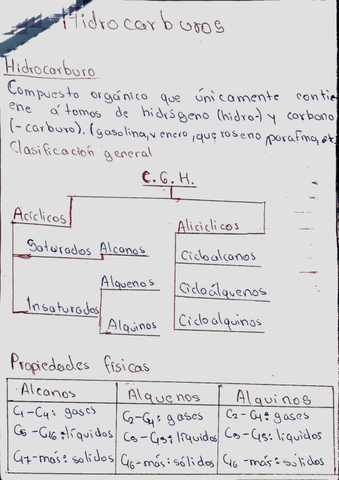 Hidrocarburos
Hidrocarburo
Compuesto orgánico que únicamente contie
ene átomos de hidrógeno (hidro-) y carbono
(-carburo). (gasolina, queroseno,
Clasificación general
C. G. H.
Acíclicos
Aliciclicos
Saturados Alcanos
Cicloalcanos
Alquenos
Cicloalquenos
Insaturados
Alquinos
Cicloalquinos
Propiedades físicas
Alcanos Alquenos Alquinos
C1-C4: gases C2-C4: gases C2-C4: gases
C5-C16: líquidos C5-C15: líquidos C5-C15: líquidos
C17-más: sólidos C16-más: sólidos C16-más: sólidos